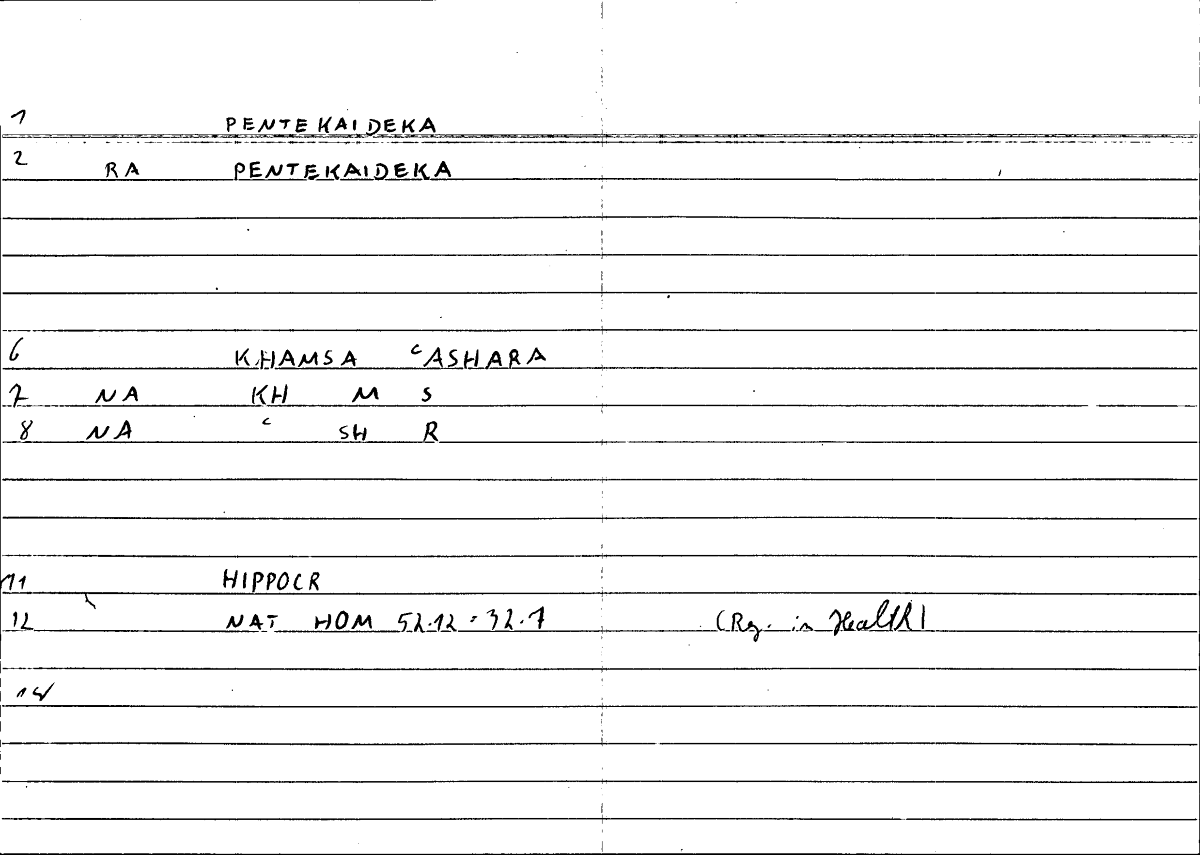 1 PENTEKAIDEKA
2 RA PENTEKAIDEKA
6 KHAMSA ʿASHARA
7 NA KH M S
8 NA ʿ SH R
11 HIPPOCR
12 NAT HOM 52.12 = 32.7 (Reg. in Health)
14